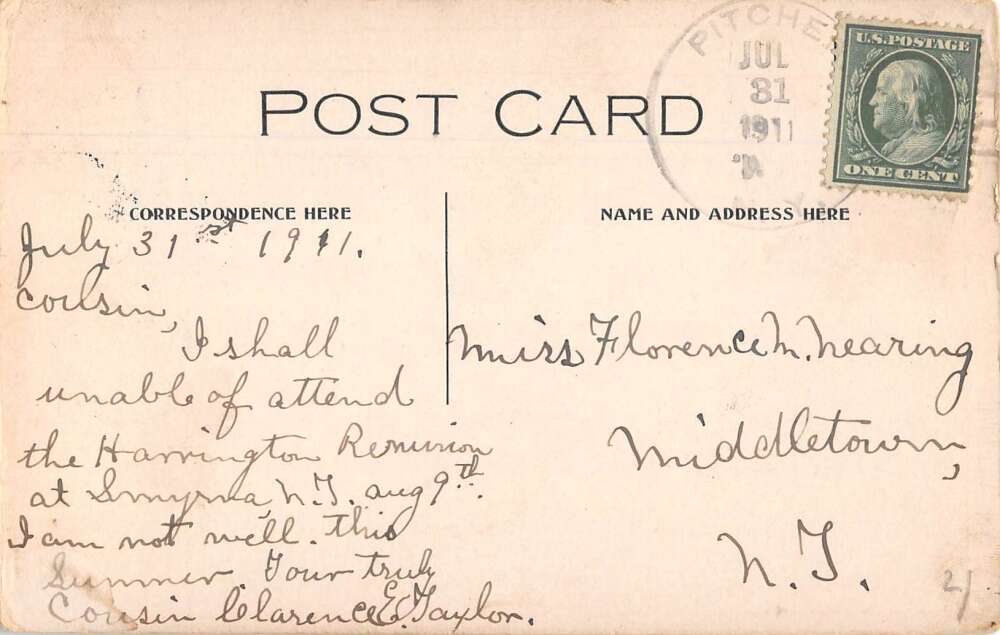 PITCHE
JUL
31
1911
N.Y.
U.S. POSTAGE
ONE CENT
POST CARD
CORRESPONDENCE HERE
NAME AND ADDRESS HERE
July 31st 1911.
Cousin,
I shall
unable of attend
the Harrington Reunion
at Smyrna, N.Y. Aug 9th.
I am not well. this
Summer. Your truly
Cousin Clarence E. Taylor.
Miss Florence M. Nearing
Middletown,
N.Y.
2/